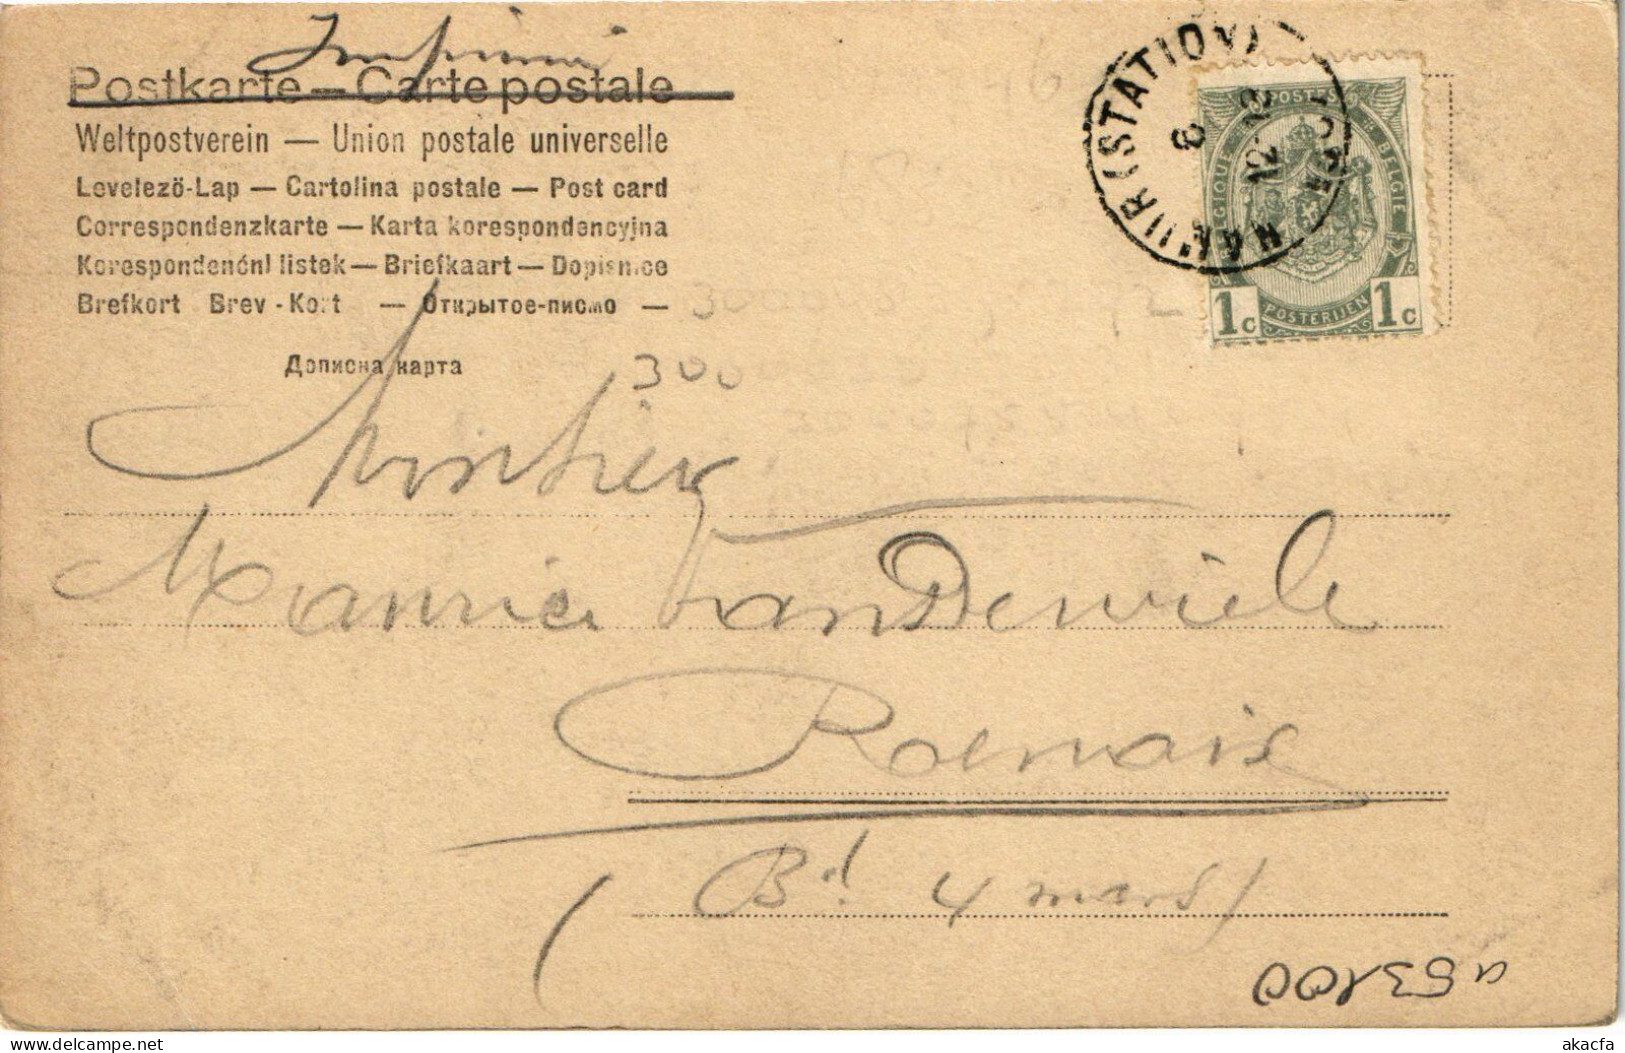 Imprimé
Postkarte — Carte postale
Weltpostverein — Union postale universelle
Levelező-Lap — Cartolina postale — Post card
Correspondenzkarte — Karta korespondencyjna
Korespondenční listek — Briefkaart — Dopisnice
Brefkort Brev-Kort — Открытое-письмо —
Дописна карта
300
Monsieur
Maurice VanDewiele
Renaix
(Bd. 4 mars)
a 53100
(STATION)
8
12-12
POSTES
BELGIQUE BELGIË
POSTERIJEN
1c 1c
akacfa